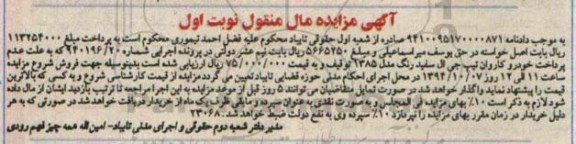 آگهی مزایده مال منقول نوبت اول
به موجب دادنامه ۹۴۱۰۰۹۵۱۷۰۰۰۰۸۷۱ صادره از شعبه اول حقوقی تایباد محکوم علیه فضل احمد تیموری محکوم است به پرداخت مبلغ ۱۱۳۲۵۴۰۰۰
ریال بابت اصل خواسته در حق یوسف میراسماعیلی و مبلغ ۵۶۶۵۲۵۰ ریال بابت نیم عشر دولتی در پرونده اجرایی شماره ۹۴۰۱۹۶/۲۰ که به علت عدم
پرداخت خودرو کاروان تیپ جی ال سفید رنگ مدل ۱۳۸۵ توقیف و به قیمت ۷۵/۰۰۰/۰۰۰ ریال ارزیابی شده است بدینوسیله جهت فروش شروع مزایده
ساعت ۱۱ الی ۱۲ روز ۱۳۹۴/۱۰/۰۷ در محل اجرای احکام مدنی حوزه قضایی تایباد تعیین می گردد مزایده از قیمت کارشناسی شروع و به کسی که بالاترین
قیمت را پیشنهاد نماید واگذار خواهد شد در صورت تمایل متقاضیان می توانند ۵ روز قبل از موعد مزایده به این اجرا مراجعه تا ترتیب بازدید ایشان از مال داده
شود لازم به ذکر است ۱۰٪ بهای مزایده فی المجلس و به صورت نقدی به عنوان سپرده و مابقی ظرف یک ماه از خریدار دریافت خواهد شد در صورتی که به هر
دلیل خریدار در زمان مقرر بهای مزایده را نپردازد ۱۰٪ سپرده وی به نفع دولت ضبط خواهد شد. ۲۳۰۶۸
مدیر دفتر شعبه دوم حقوقی و اجرای مدنی تایباد- امین اله همه چیز فهم رودی